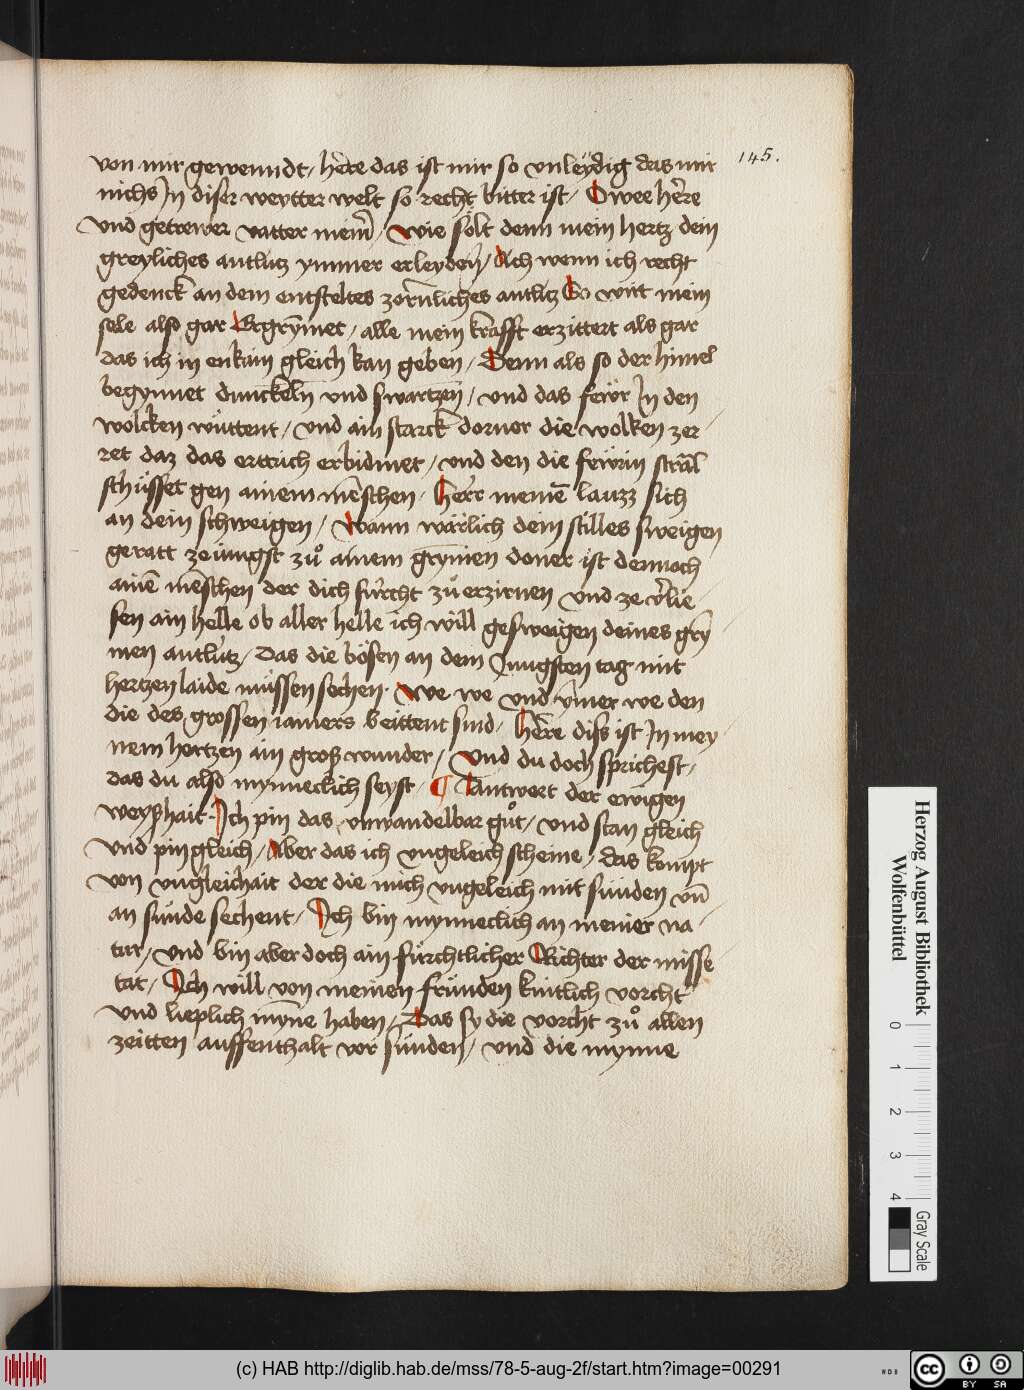 145.
von mir gewenndt / here das ist mir so vnleÿdig das mir
nichs Jn diser weytter welt so recht bitter ist / Owee h̄ere
vnd getrewer vatter mein̄ / wie sölt denn mein hertz dein
greyliches antlütz ymmer erleyden / Ach wenn ich recht
gedenck an dem entsteltes zornliches antlitz So wirt mein
sele also gar Ergrÿmet / alle mein krafft erzittert als gar
das ich in enkäin gleich kan geben / Denn als so der himel
begynnet dunckeln vnd swartzen / vnd das feẅr Jn den
wolcken wüttent / vnd ain starck dorner die wolken zer-
ret daz das ertrich erbidmet / vnd den die feẅrin strāl
schüsset gen ainem mēschen / Herr meinē lauzz sich
an dein schweigen / Wann wärlich dein stilles sweigen
geratt zeüngst zů ainem grȳmen doner ist dennoch
ainē mēschen der dich fürcht zů erzirnen vnd ze v̄lie-
sen ain helle ob aller helle ich will gesweigen deines grȳ-
men antlütz / Das die bösen an dem Jungsten tag mit
hertzen laide müssen sechen · We we vnd ȳmer we den
die des grossen iamers beittent sind / Here diss ist Jn mey-
nem hertzen ain groß wunder / Vnd du doch sprichest /
das du also mynneclich seyst / ¶ Antwort der ewigen
weyßhait · Jch pin das vnwandelbar gůt / vnd stan gleich
vnd pin gleich / Aber das ich vngeleich scheine / das kompt
von vngleichait der die mich vngeleich mit sünden vn̄
an sünde sechent / Jch bin mynneclich an meiner na-
tur / vnd bin aber doch ain fürchtlicher Richter der misse-
tat / Jch will von meinen fründen kintlich vorcht
vnd lieplich mȳne haben / Das sy die vorcht zů allen
zeitten auffenthalt vor sünden / vnd die mynne
Herzog August Bibliothek
Wolfenbüttel
0 1 2 3 4
Gray Scale
(c) HAB http://diglib.hab.de/mss/78-5-aug-2f/start.htm?image=00291
WDB
cc BY SA